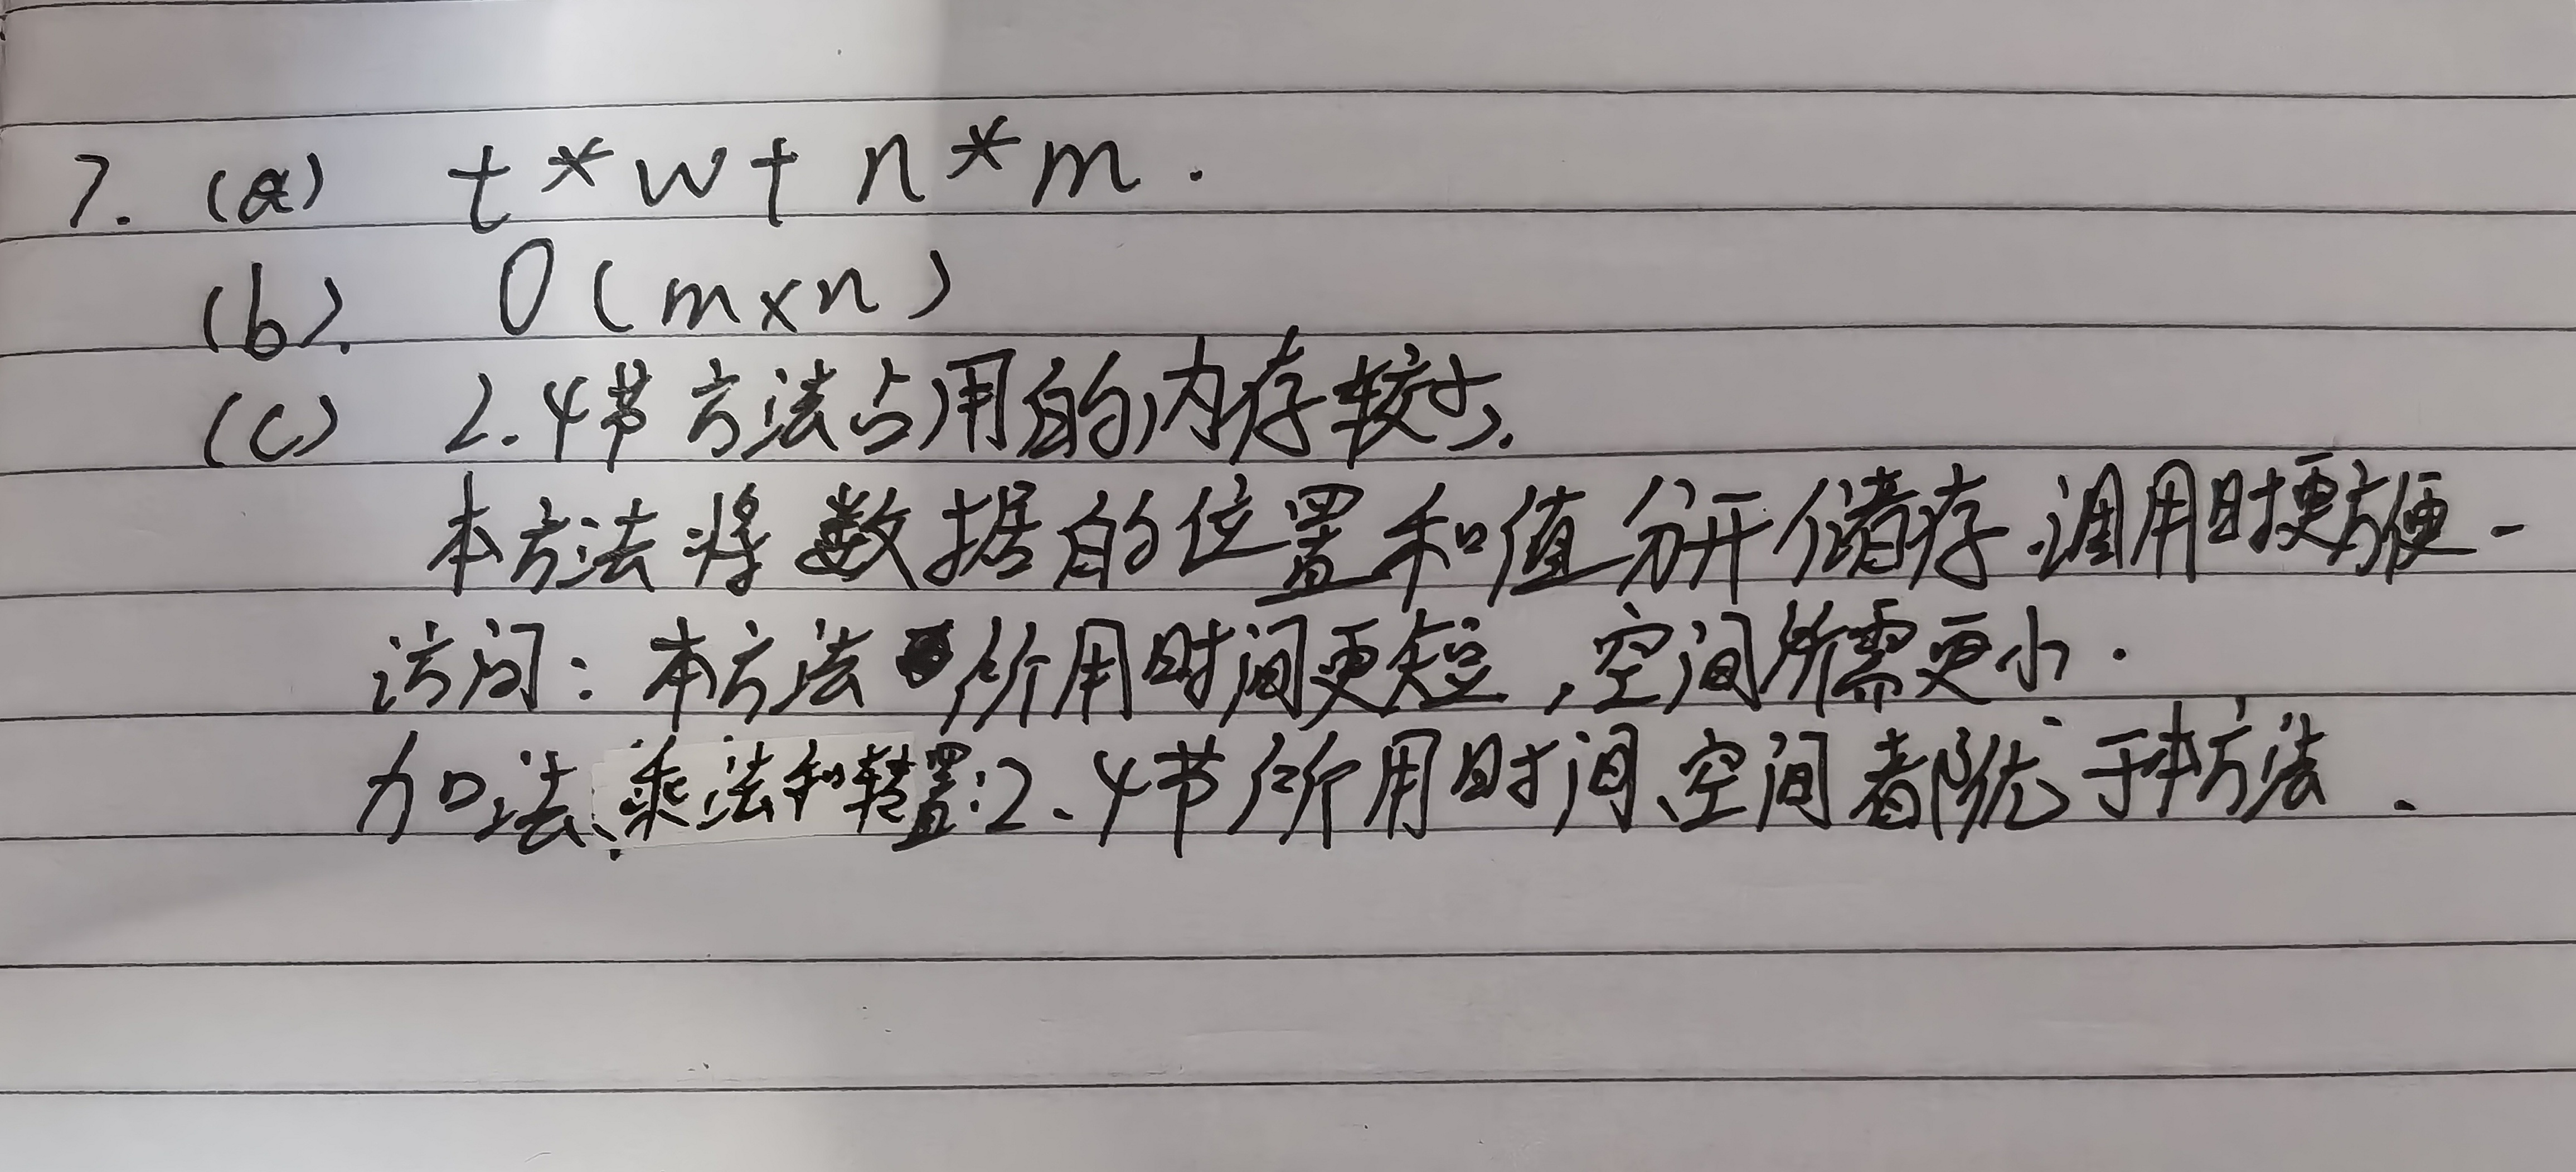 7. (a) t*w+n*m.
(b). O(m×n)
(c) 2.4节方法占用的内存较少.
本方法将数据的位置和值分开储存.调用时更方便-
访问:本方法所用时间更短,空间所需更小.
加法、乘法和转置:2.4节所用时间、空间都优于本方法.